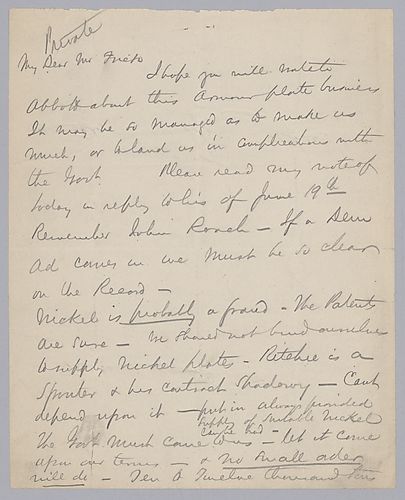 Private
My Dear Mr Frick
I hope you will write to
Abbott about this Armour plate business
It may be so managed as to make us
much, or to land us in complications with
the Govt Please read my note of
today in reply to his of June 19th
Remember John Roach — If a Dem
Ad comes in we must be so clear
on the Record —
Nickel is probably a fraud — The Patents
are sure — We should not bind ourselves
to supply Nickel plates — Ritchie is a
Spouter & his contract Shadowy — Can't
depend upon it — put in always provided
supply of Suitable Nickel
can be had —
The Govt must come to us — let it come
upon our terms — & no small order
will do — Ten or Twelve thousand tons